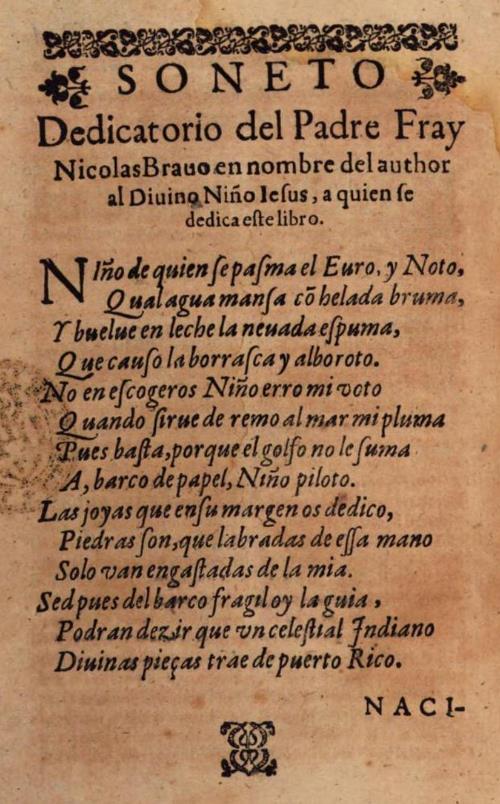 SONETO
Dedicatorio del Padre Fray
Nicolas Brauo en nombre del author
al Diuino Niño Iesus, a quien se
dedica este libro.
NIño de quien se pasma el Euro, y Noto,
Qual agua mansa cõ helada bruma,
Y buelue en leche la neuada espuma,
Que causo la borrasca y alboroto.
No en escogeros Niño erro mi voto
Quando sirue de remo al mar mi pluma
Pues basta, porque el golfo no le suma
A, barco de papel, Niño piloto.
Las joyas que en su margen os dedico,
Piedras son, que labradas de essa mano
Solo van engastadas de la mia.
Sed pues del barco fragil oy la guia,
Podran dezir que vn celestial Indiano
Diuinas pieças trae de puerto Rico.
NACI-